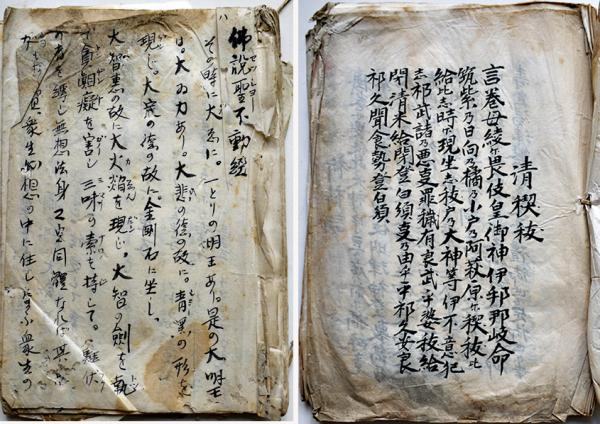 佛說聖不動經
その時に大会に。一とりの明王あり。是の大明王
は。大ゐ力あり。大悲の徳の故に。青黒の形を
現じ。大定の徳の故に金剛石に坐し。
大智慧の故に大火焔を現じ。大智の劔を執
て貪瞋癡を害し三昧の索を持して。難伏
の者を縛し無想法身 同體なれば
衆生心想の中に住し給ふ衆生の
清禊祓
言巻毋綾尓畏伎皇御神伊邪那岐命
筑紫乃日向乃橘乃小戸乃阿萩原尓禊祓比
給比志時尓現坐志祓戸乃大神等伊不意犯
志祁武諸乃悪㕝罪穢有良武乎婆祓給
閉清米給閉登白須㕝乃由乎平祁久安良
祁久聞食勢登白須